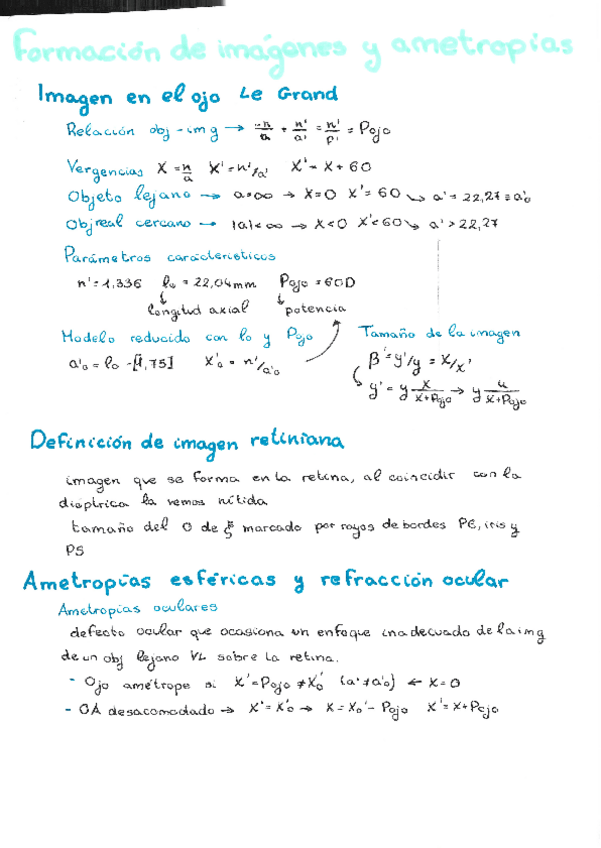 Formación de imágenes y ametropías
Imagen en el ojo Le Grand
Relación obj-img → -n/a + n'/a' = n'/f' = Pojo
Vergencias X = n/a X' = n'/a' X' = X + 60
Objeto lejano → a=∞ → X=0 X'=60 ↘ a'=22,27=a'o
Obj real cercano → |a|<∞ → X<0 X'<60 ↘ a'>22,27
Parámetros característicos
n'=1,336 lo=22,04mm Pojo=60D
longitud axial potencia
Modelo reducido con lo y Pojo
a'o = lo -[1,75] X'o = n'/a'o
Tamaño de la imagen
β'=y'/y = X/X'
y' = y X/X+Pojo → y u/X+Pojo
Definición de imagen retiniana
imagen que se forma en la retina, al coincidir con la
dióptrica la vemos nítida
tamaño del O de ξ marcado por rayos de bordes PE, iris y
PS
Ametropías esféricas y refracción ocular
Ametropías oculares
defecto ocular que ocasiona un enfoque inadecuado de la img
de un obj lejano VL sobre la retina.
- Ojo amétrope si X'=Pojo ≠X'o (a'≠a'o) ← X=0
- OA desacomodado → X'=X'o → X=Xo'- Pojo X'=X+Pojo